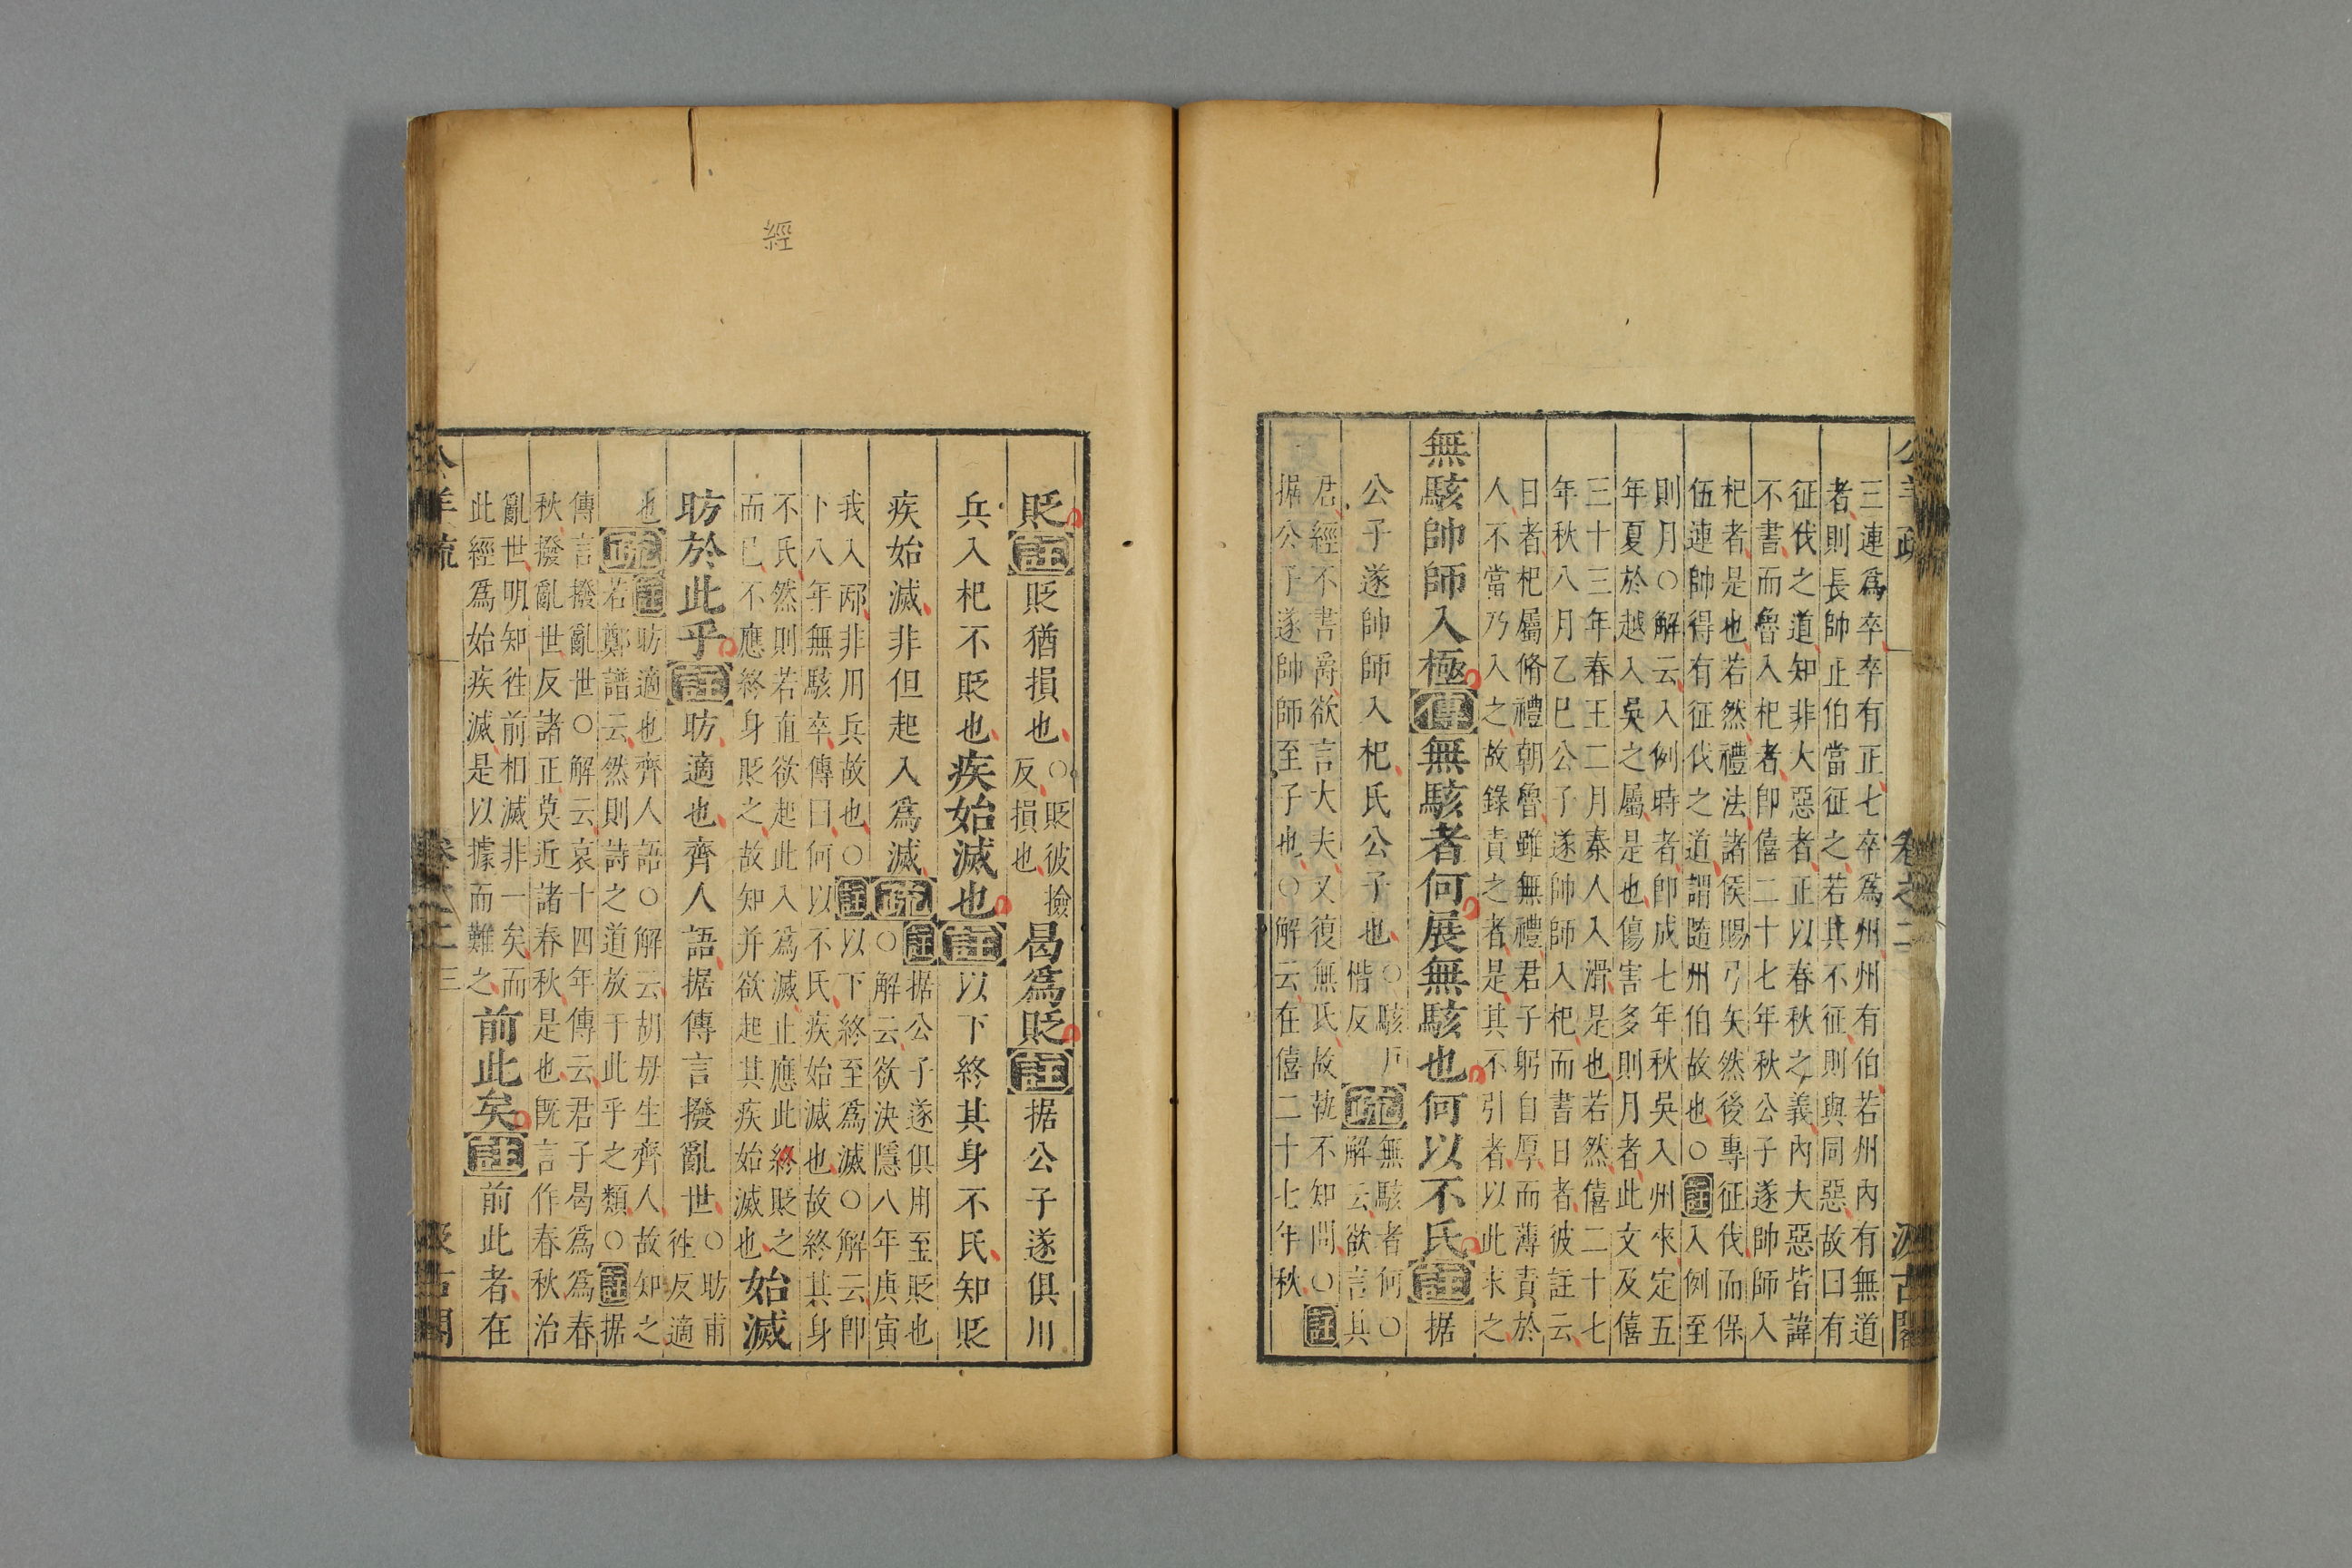 公羊疏 卷之二 汲古閣
三連爲卒卒有正七卒爲州州有伯若州內有無道
者則長帥止伯當征之若其不征則與同惡故曰有
征伐之道知非大惡者正以春秋之義內大惡皆諱
不書而魯入杞者卽僖二十七年秋公子遂帥師入
杞者是也若然禮法諸侯賜弓矢然後專征伐而保
伍連帥得有征伐之道謂隨州伯故也○註入例至
則月○解云入例時者卽成七年秋吳入州來定五
年夏於越入吳之屬是也傷害多則月者此文及僖
三十三年春王二月秦人入滑是也若然僖二十七
年秋八月乙巳公子遂帥師入杞而書日者彼註云
日者杞屬脩禮朝魯雖無禮君子躬自厚而薄責於
人不當乃入之故錄責之者是其不引者以此求之
無駭帥師入極傳無駭者何展無駭也何以不氏註据
公子遂帥師入杞氏公子也○駭戶楷反疏無駭者何○解云欲言其
君經不書爵欲言大夫又復無氏故執不知問○註
据公子遂帥師至子也○解云在僖二十七年秋
經
貶註貶猶損也○貶彼撿反損也曷爲貶註据公子遂俱用
兵入杞不貶也疾始滅也註以下終其身不氏知貶
疾始滅非但起入爲滅疏註据公子遂俱用至貶也
○解云欲決隱八年庚寅
我入邴非用兵故也○註以下終至爲滅○解云卽
卜八年無駭卒傳曰何以不氏疾始滅也故終其身
不氏然則若直欲起此入爲滅止應此終貶之
而已不應終身貶之故知并欲起其疾始滅也始滅
昉於此乎註昉適也齊人語据傳言撥亂世○昉甫往反適
也疏註昉適也齊人語○解云胡毋生齊人故知之
若鄭譜云然則詩之道放于此乎之類○註据
傳言撥亂世○解云哀十四年傳云君子曷爲爲春
秋撥亂世反諸正莫近諸春秋是也旣言作春秋治
亂世明知往前相滅非一矣而
此經爲始疾滅是以據而難之前此矣註前此者在
公羊疏 卷之二 三 汲古閣